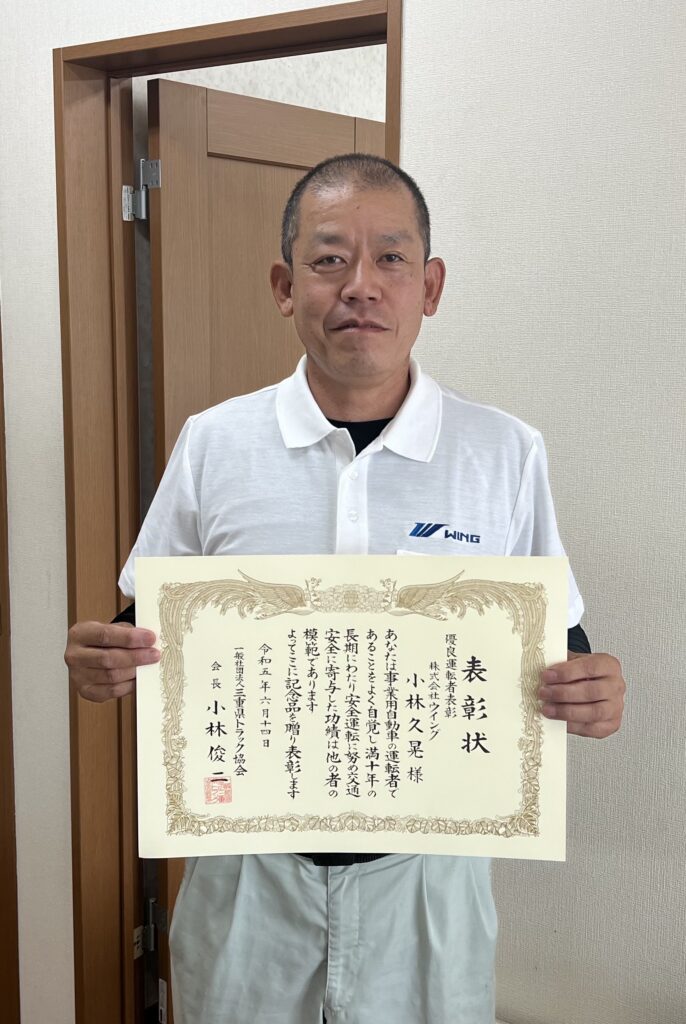 WING
表彰状
優良運転者表彰
株式会社ウイング
小林久晃 様
あなたは事業用自動車の運転者で
あることをよく自覚し満十年の
長期にわたり安全運転に努め交通
安全に寄与した功績は他の者の
模範であります
よってここに記念品を贈り表彰します
令和五年六月十四日
一般社団法人三重県トラック協会
会長 小林俊二